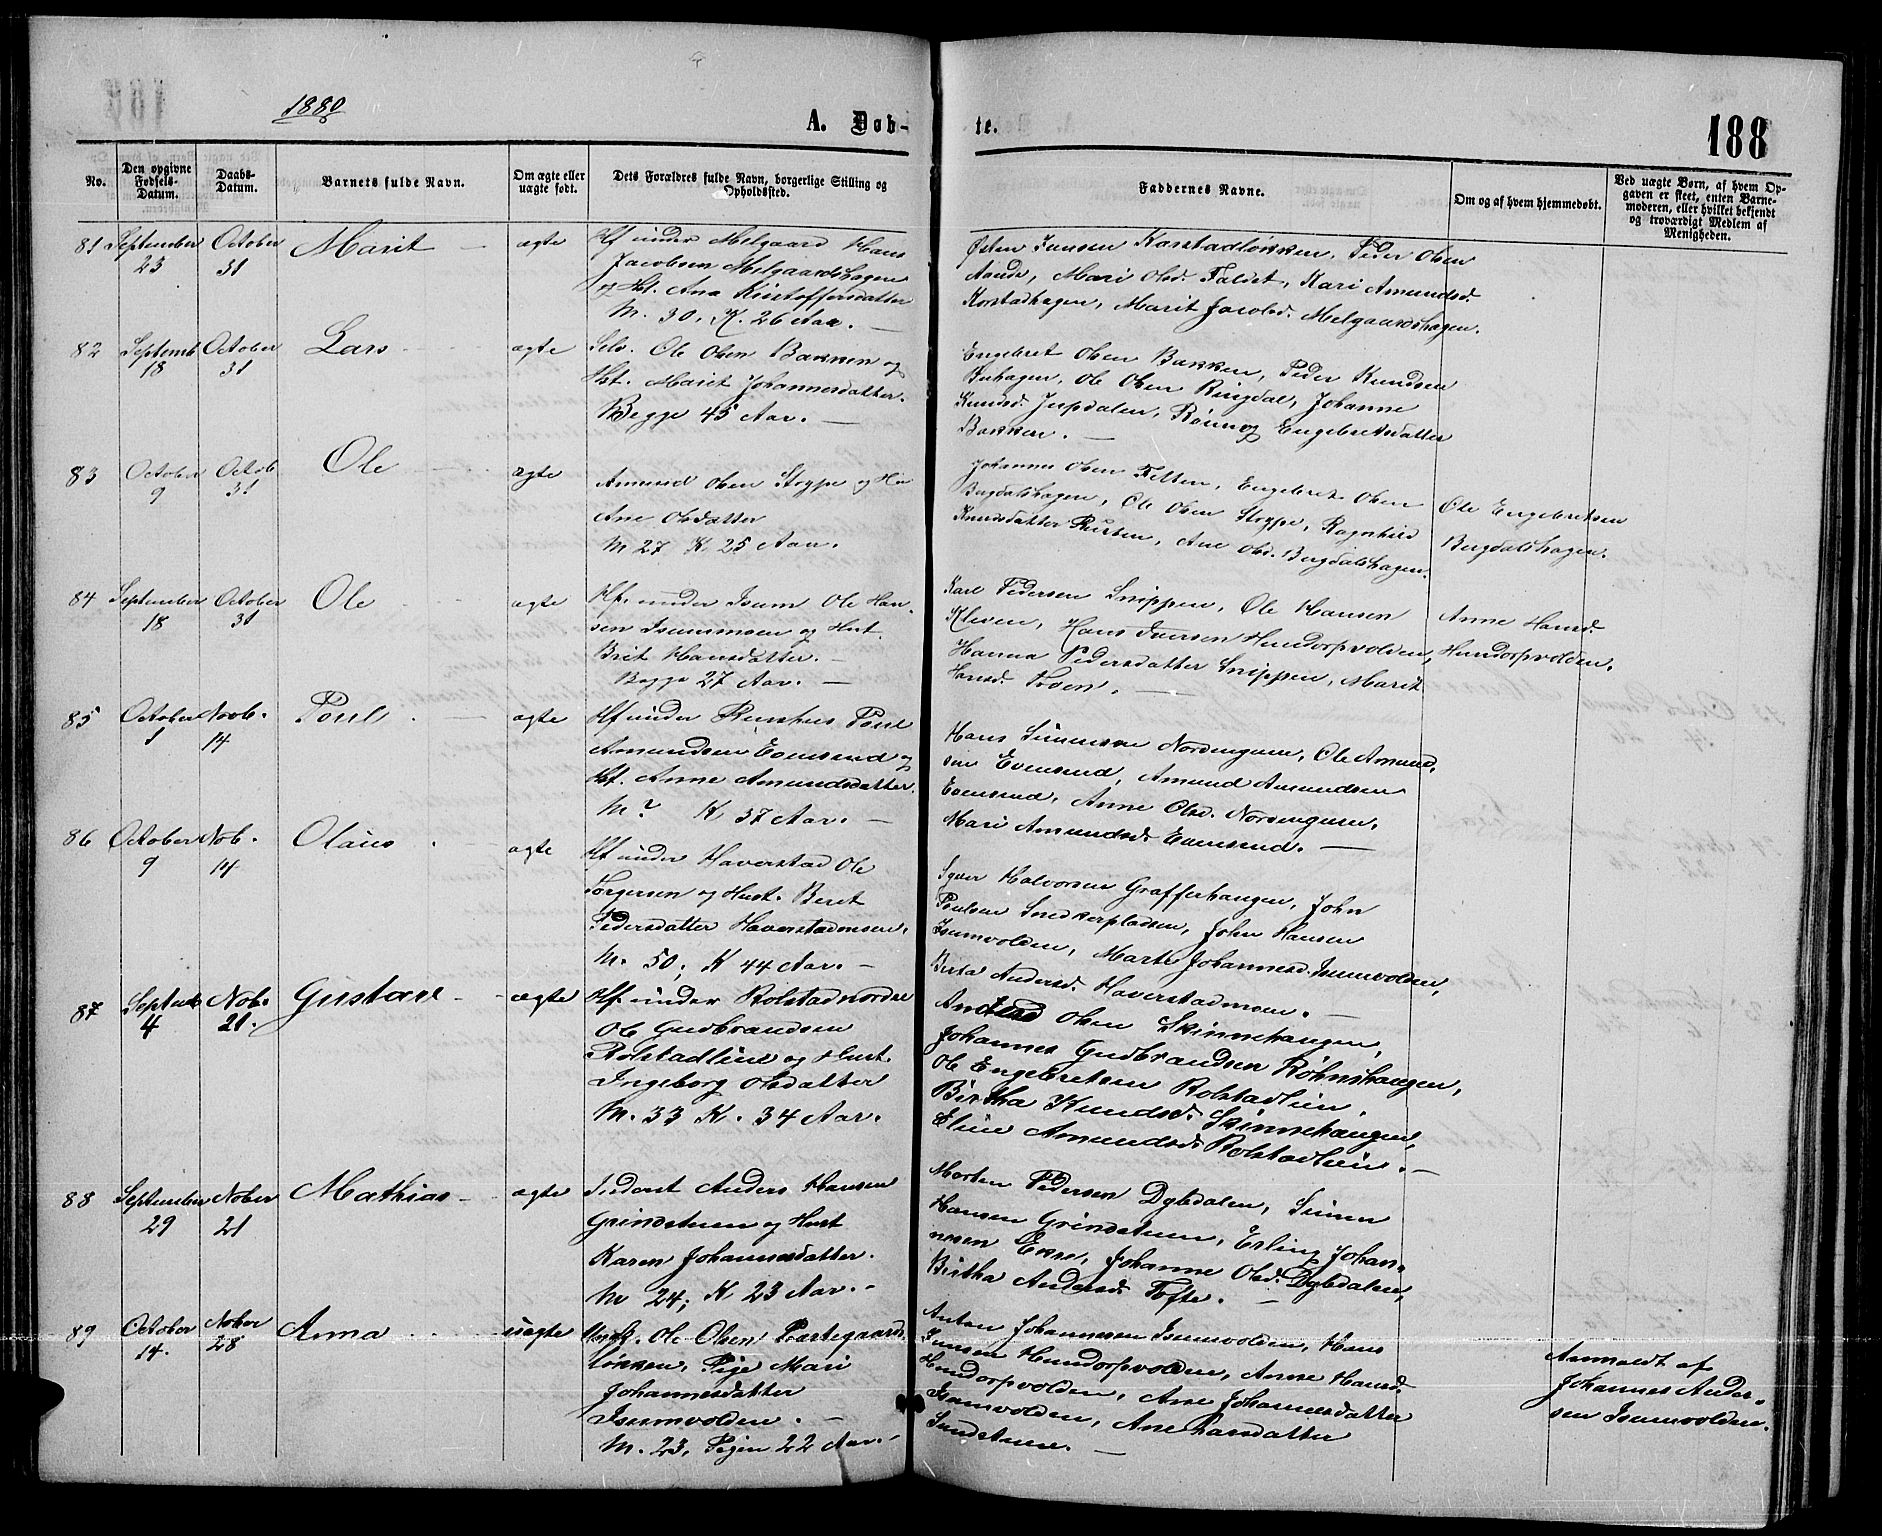 1880
A. Døb-
te.
188
No.
Den opgivne
Fødsels-
Datum.
Daabs-
Datum.
Barnets fulde Navn.
Om ægte eller
uægte født.
Dets Forældres fulde Navn, borgerlige Stilling og
Opholdssted.
Faddernes Navne.
Om og af hvem hjemmedøbt.
Ved uægte Børn, af hvem Op-
gaven er skeet, enten Barne-
moderen, eller hvilket bekjendt
og troværdigt Medlem af
Menigheden.
81 September 23 October 31 Marit ægte
Hf under Melgaard Hans
Jacobsen Melgaardshagen
og Hst. Ana Kristoffersdatter
M. 30, K. 26 Aar.
Østen Jensen Korstadløkken, Peder Olsen
Aande, Mari Olsd. Faldet, Kari Amundsd.
Korstadhagen, Marit Jacobsd. Melgaardshagen.
82 Septemb 18 October 31 Lars ægte
Selv. Ole Olsen Bakken og
Hst. Marit Johannesdatter.
Begge 45 Aar.
Engebret Olsen Bakken, Peder Knudsen
Ole Olsen Ringdal, Johanne
Knudsd. Jepdalen, Rønnog Engebretsdatter
Bakken.
83 October 9 Octob 31 Ole ægte
Amund Olsen Stoype og Hu
Ane Olsdatter
M 27 K 25 Aar.
Johannes Olsen Felten, Engebret Olsen
Bergdalshagen, Ole Olsen Stoype, Ragnhild
Knudsdatter Rusten, Ane Olsd. Bergdalshagen.
Ole Engebretsen
Bergdalshagen.
84 September 18 October 31 Ole ægte
Hf. under Isum Ole Han-
sen Isummoen og Hust.
Brit Hansdatter.
Begge 27 Aar.
Karl Pedersen Snippen, Ole Hansen
Kleven, Hans Iversen Hundorpvolden,
Hanna Pedersdatter Snippen, Marit
Hansd. Loen.
Anne Hansd.
Hundorpvolden.
85 October 1 Novb. 14 Poul ægte
Hf under Rushus Poul
Amundsen Evensend og
Hst. Anne Amundsdatter.
M? K 37 Aar.
Hans Simensen Nordenguen, Ole Amund-
sen Evensend, Amund Amundsen
Evensend, Anne Olsd. Nordenguen,
Mari Amundsd. Evensend.
86 October 9 Nob. 14 Olaus ægte
Hf under Haverstad Ole
Torgersen og Hust. Beret
Pedersdatter Haverstadmoen.
M. 50, K 44 Aar.
Syver Halvorsen Grafferhaugen, John
Poulsen Snedkerpladsen, John Hansen
Isumvolden, Marte Johannesd. Isumvolden,
Berta Andersd. Haverstadmoen.
87 Septemb 4 Nob. 21. Gustav ægte
Hf. under Rolstad nordre
Ole Gudbrandsen
Rolstadlien og Hust.
Ingeborg Olsdatter
M. 33 K. 34 Aar.
Olsen Skinnehaugen,
Johannes Gudbrandsen Røhnshaugen,
Ole Engebretsen Rolstadlien,
Birtha Knudsd. Skinnehaugen,
Eline Amundsd. Rolstadlien.
88 September 29 Nober 21 Mathias ægte
Inderst Anders Hansen
Grindstuen og Hust
Karen Johannesdatter.
M 24; K 23 Aar.
Morten Pedersen Dybdalen, Simen
Hansen Grindstuen, Erling Johan-
nesen Ekre, Johanne Olsd. Dybdalen,
Birtha Andersd. Tofte.
89 October 14. Nober 28 Anna uægte
Ungk. Ole Olsen Toartegaards
løkken, Pige Mari
Johannesdatter
Isumvolden.
M. 23, Pigen 22 Aar.
Anton Johannesen Isumvolden, Hans
Iversen Hundorpvolden, Anne Hansd.
Hundorpvolden, Ane Johannesdatter
Isumvolden, Ane Larsdatter
Sundstuen.
Anmeldt af
Johannes Ander-
sen Isumvolden.